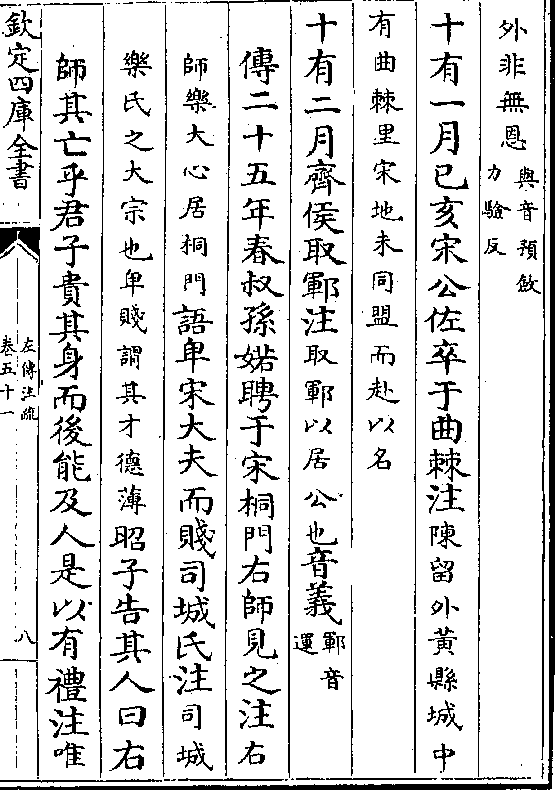 外非無恩與音預斂力驗反
十有一月已亥宋公佐卒于曲棘注陳留外黃縣城中
有曲棘里宋地未同盟而赴以名
十有二月齊侯取鄆注取鄆以居公也音義鄆音運
傳二十五年春叔孫婼聘于宋桐門右師見之注右
師樂大心居桐門語卑宋大夫而賤司城氏注司城
樂氏之大宗也卑賤謂其才德薄昭子告其人曰右
師其亡乎君子貴其身而後能及人是以有禮注唯
欽定四庫全書
左傳注疏
卷五十一
八